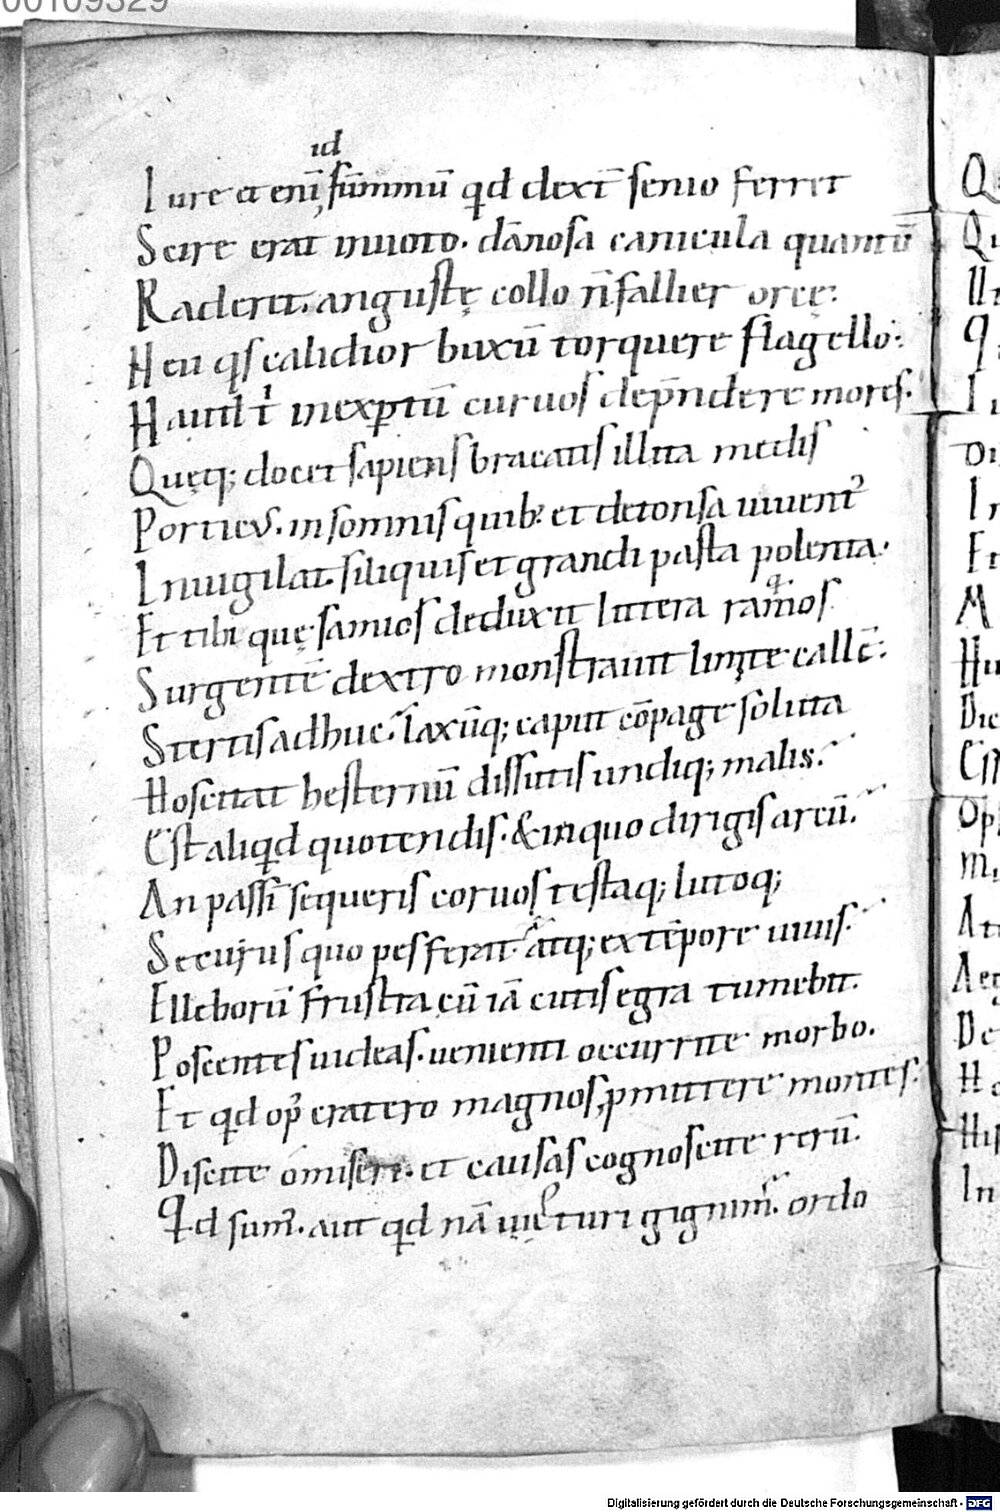 00109329
id
Iure et enī sūmmū qd dext̄ senio ferret
Scire erat inuoto. dānosa canicula quantū
Raderet. angustę collo n̄ fallier orcę:
Heu qs calidior buxū torquere flagello:.
Haut t inexptū curuos dep̄ndere mores.
Quęq; docet sapiens bracatis illita medis
Porticus. insomnis quib: et detonsa iuuent
Inuigilat. siliquis et grandi pasta polenta.
Et tibi quę samios deduxit littera ramos
Surgentē dextro monstrauit limite callē:
Stertis adhuc. laxūq; caput cōpage soluta
Hoscitat hesternū dissutis undiq; malis.
Est aliqd quo tendis. & inquo dirigis arcū.
An passī sequeris coruos testaq; lutoq;
Securus quo pes ferat. atq; ex tēpore uiuis.
Elleborū frustra cū iā cutis egra tumebit.
Poscentes uideas. uenienti occurrite morbo.
Et qd op cratero magnos pmittere montes.
Discite omiseri. et causas cognoscite rerū.
Qd sum. aut qd nā uicturi gignim. ordo
Digitalisierung gefördert durch die Deutsche Forschungsgemeinschaft - DFG